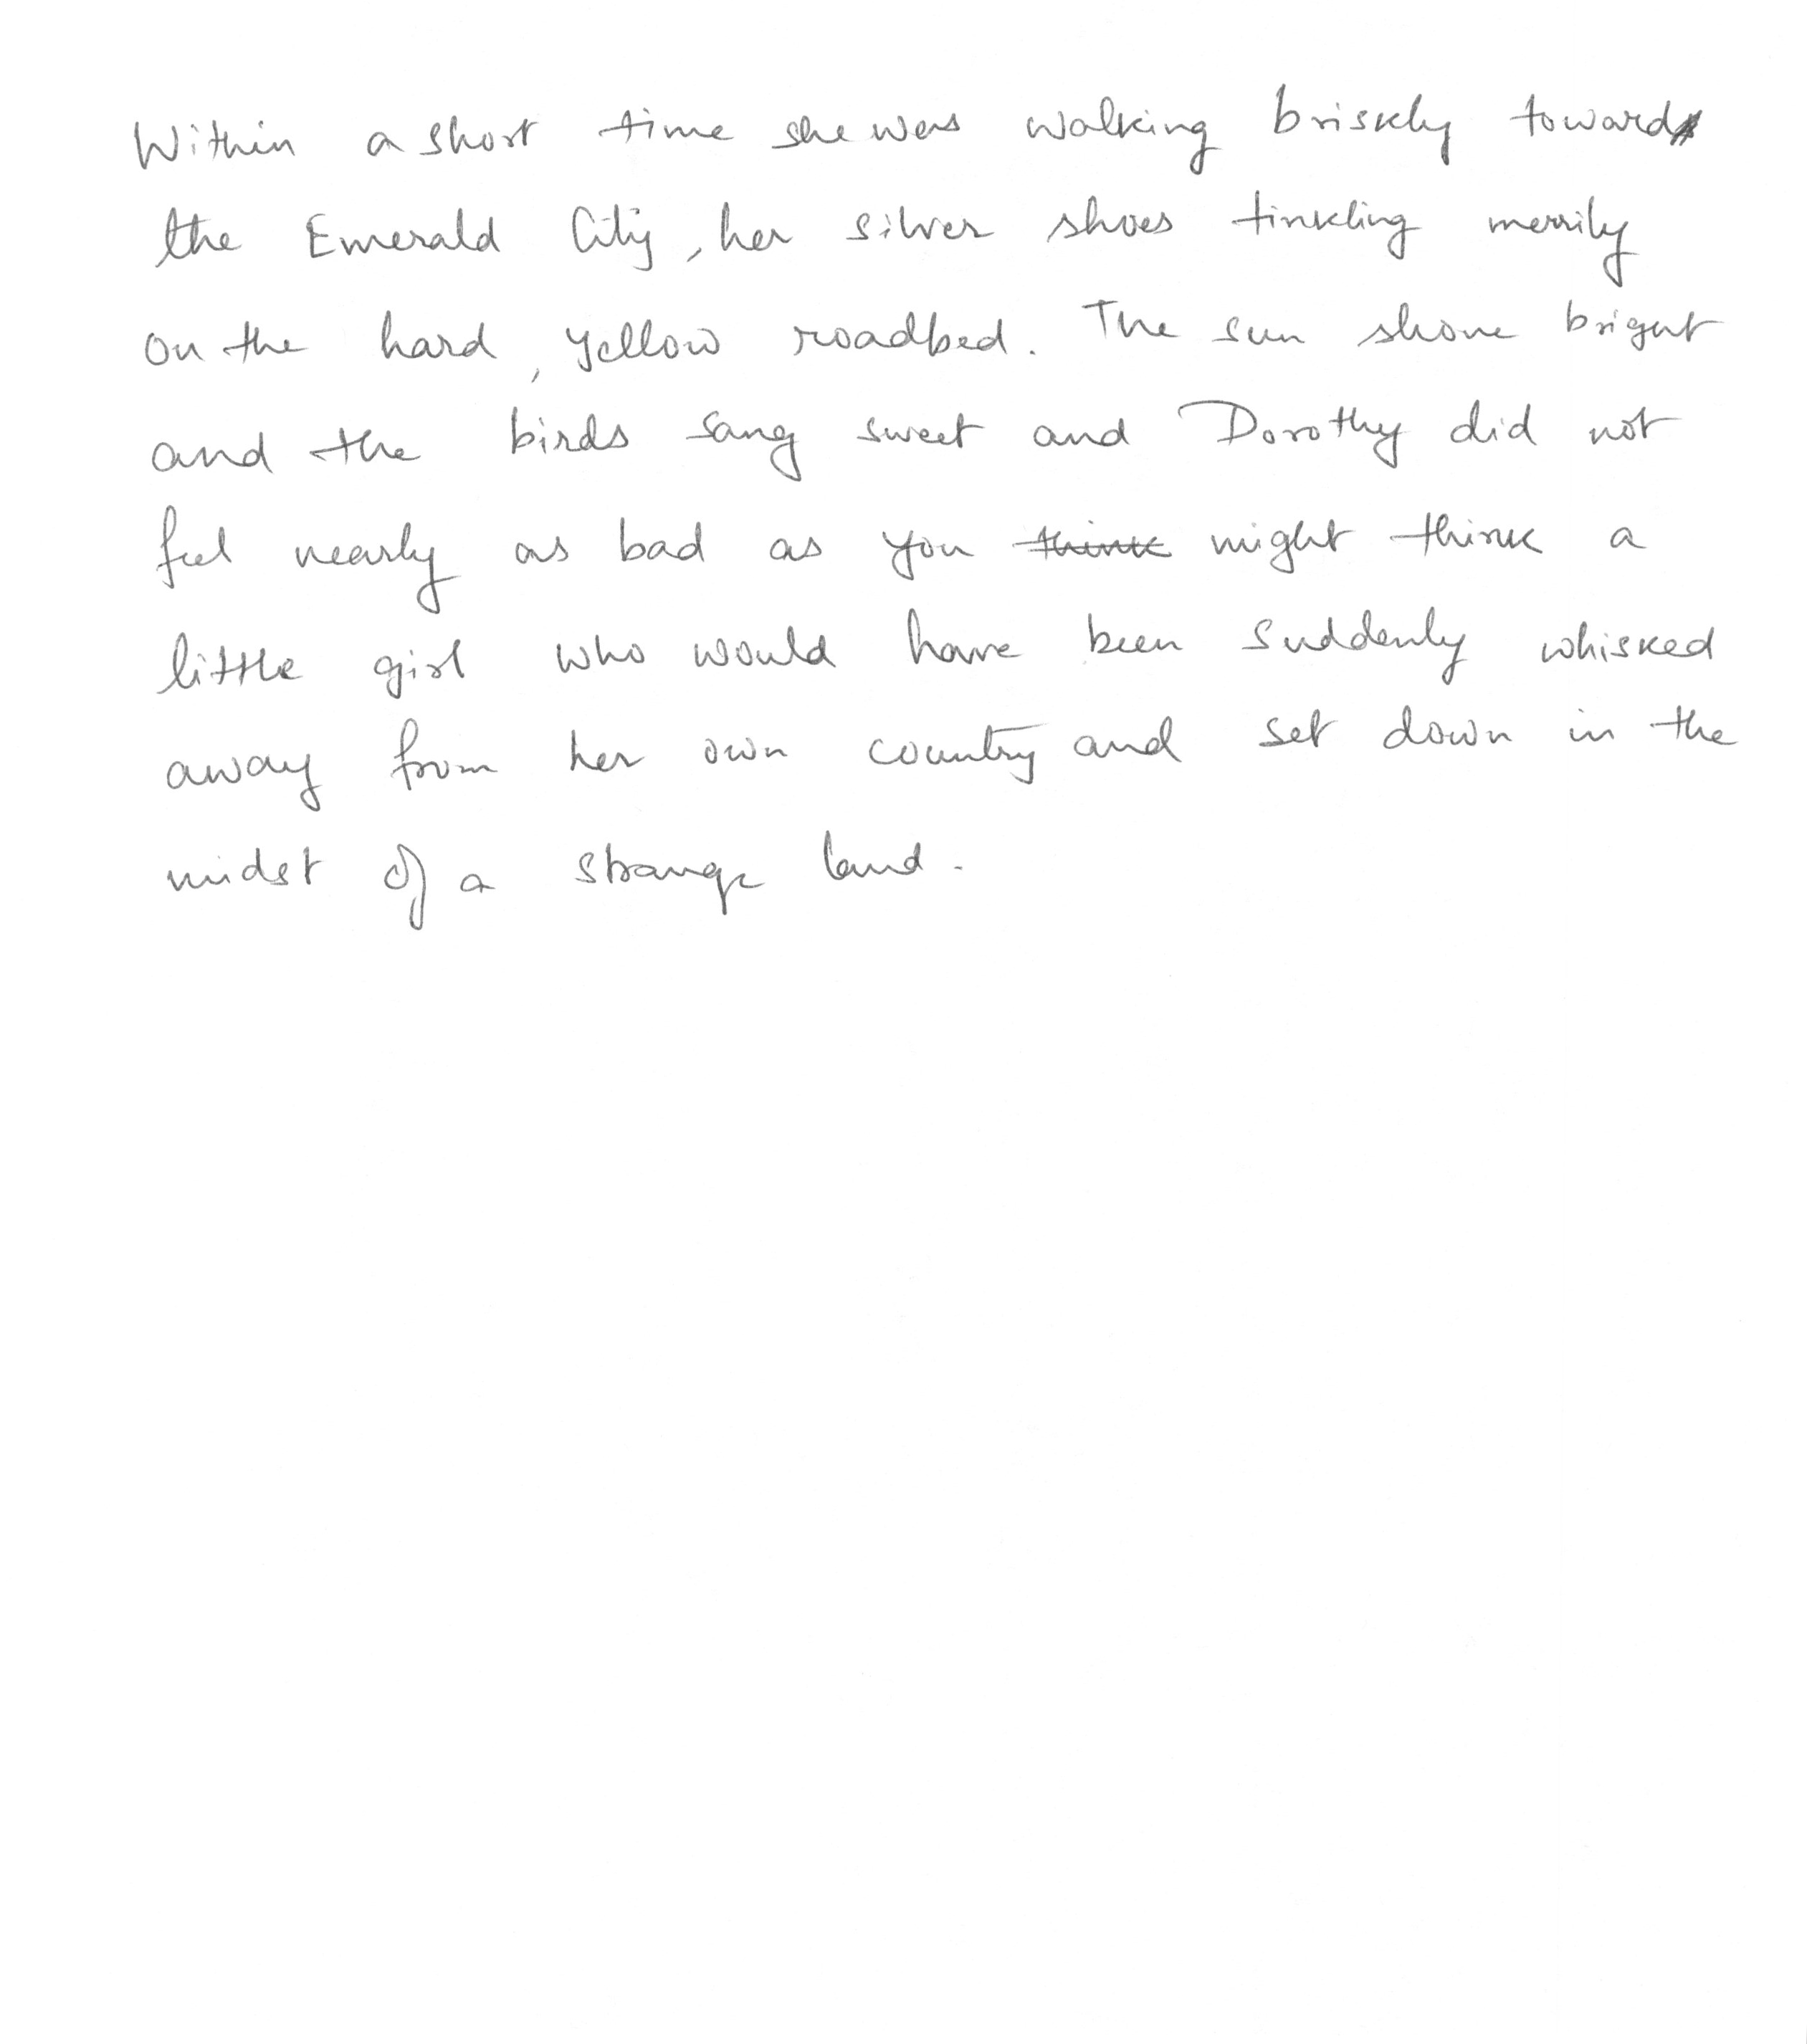 Within a short time she was walking briskly toward
the Emerald City, her silver shoes tinkling merrily
on the hard, yellow roadbed. The sun shone bright
and the birds sang sweet and Dorothy did not
feel nearly as bad as you think might think a
little girl who would have been suddenly whisked
away from her own country and set down in the
midst of a strange land.